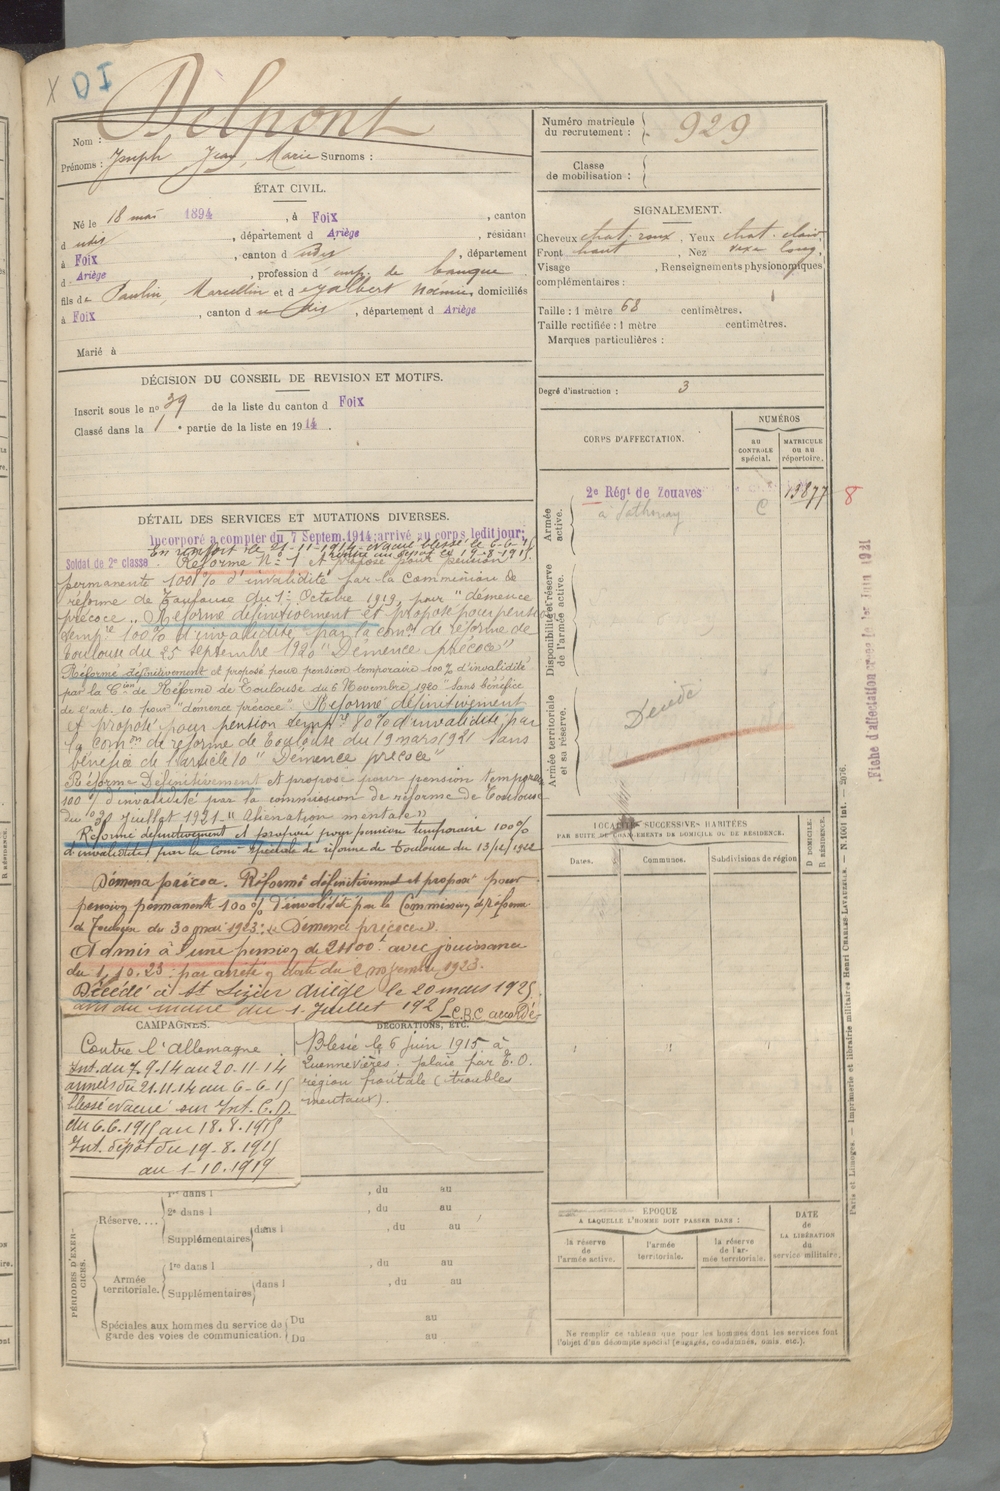 X DI
Delpont
Nom :
Prénoms : Joseph Jean, Marie Surnoms :
Numéro matricule du recrutement : 929
Classe de mobilisation :
ÉTAT CIVIL.
Né le 18 mai 1894, à Foix, canton
d udis, département d Ariège, résidant
à Foix, canton d udis, département
d Ariège, profession d' emp. de banque
fils de Paulin, Marcellin et d Noémie, domiciliés
à Foix, canton d udis, département d Ariège
Marié à
SIGNALEMENT.
Cheveux chat. roux, Yeux chat. clair,
Front haut, Nez long,
Visage , Renseignements physionomiques
complémentaires :
Taille : 1 mètre 68 centimètres.
Taille rectifiée : 1 mètre centimètres.
Marques particulières :
Degré d'instruction : 3
DÉCISION DU CONSEIL DE REVISION ET MOTIFS.
Inscrit sous le no 39 de la liste du canton d Foix
Classé dans la 1e partie de la liste en 1914.
DÉTAIL DES SERVICES ET MUTATIONS DIVERSES.
Incorporé à compter du 7 Septem. 1914; arrivé au corps ledit jour;
En renfort le 21-11-1914 - évacué blessé le 6-6-15
rentré au dépôt le 19-8-1915
Soldat de 2e classe. Réforme N° 1 et proposé pour pension
permanente 100% d'invalidité par la Commission de
réforme de Toulouse du 1er Octobre 1919 pour "démence
précoce" Réformé définitivement et proposé pour pension
temp.re 100% d'invalidité par la com.on de réforme de
Toulouse du 25 Septembre 1920 "Démence précoce"
Réformé définitivement et proposé pour pension temporaire 100% d'invalidité
par la C.ion de Réforme de Toulouse du 6 Novembre 1920 "Sans bénéfice
de l'art. 10 pour "démence précoce". Réformé définitivement
et proposé pour pension temp.re 80% d'invalidité par
la com.on de réforme de Toulouse du 19 mars 1921 Sans
bénéfice de l'article 10 "Démence précoce"
Réformé Définitivement et proposé pour pension temporaire
100% d'invalidité par la commission de réforme de Toulouse
du 30 Juillet 1921 - "Aliénation mentale"
Réformé définitivement et proposé pour pension temporaire 100%
d'invalidité par la Com.on Spéciale de réforme de Toulouse du 13/12/1922
Démence précoce. Réformé définitivement et proposé pour
pension permanente 100% d'invalidité par la Commission de réforme
de Toulouse du 30 mai 1923: "Démence précoce".
Admis à une pension de 2400f avec jouissance
du 1.10.23: par arrêté en date du 1923.
Décédé à St Lizier Ariège le 20 mars 1925
avis du maire du 1er Juillet 1925 C.B.C accordé
CAMPAGNES.
Contre l'Allemagne
Int. du 7.9.14 au 20-11-14
armées du 21.11.14 au 6-6-15
blessé évacué sur Int. C.D.
du 6.6.1915 au 18.8.1915
Int. dépôt du 19-8.1915
au 1-10.1919
DÉCORATIONS, ETC.
Blessé le 6 juin 1915 à
Quennevières. plaie par E.O.
région frontale (troubles
mentaux).
PÉRIODES D'EXERCICES.
Réserve....
1re dans l , du au
2e dans l , du au
Supplémentaires dans l , du au
Armée territoriale.
1re dans l , du au
Supplémentaires dans l , du au
Spéciales aux hommes du service de garde des voies de communication.
Du au
Du au
CORPS D'AFFECTATION.
NUMÉROS
AU CONTROLE spécial.
MATRICULE OU AU répertoire.
Armée active.
2e Régt de Zouaves
C
15877
8
Disponibilité et réserve de l'armée active.
Armée territoriale et sa réserve.
Décédé
LOCALITÉS SUCCESSIVES HABITÉES
PAR SUITE DE CHANGEMENTS DE DOMICILE OU DE RÉSIDENCE.
Dates.
Communes.
Subdivisions de région
D DOMICILE.
R RÉSIDENCE.
ÉPOQUE
A LAQUELLE L'HOMME DOIT PASSER DANS :
la réserve de l'armée active.
l'armée territoriale.
la réserve de l'armée territoriale.
DATE de LA LIBÉRATION du service militaire.
Ne remplir ce tableau que pour les hommes dont les services font
l'objet d'un décompte spécial (engagés, condamnés, omis, etc.).
Fiche d'affectation le 1er Juin 1921
Paris et Limoges. — Imprimerie et librairie militaires Henri CHARLES-LAVAUZELLE. — N. 1001 Int. — 2076.
R RÉSIDENCE.